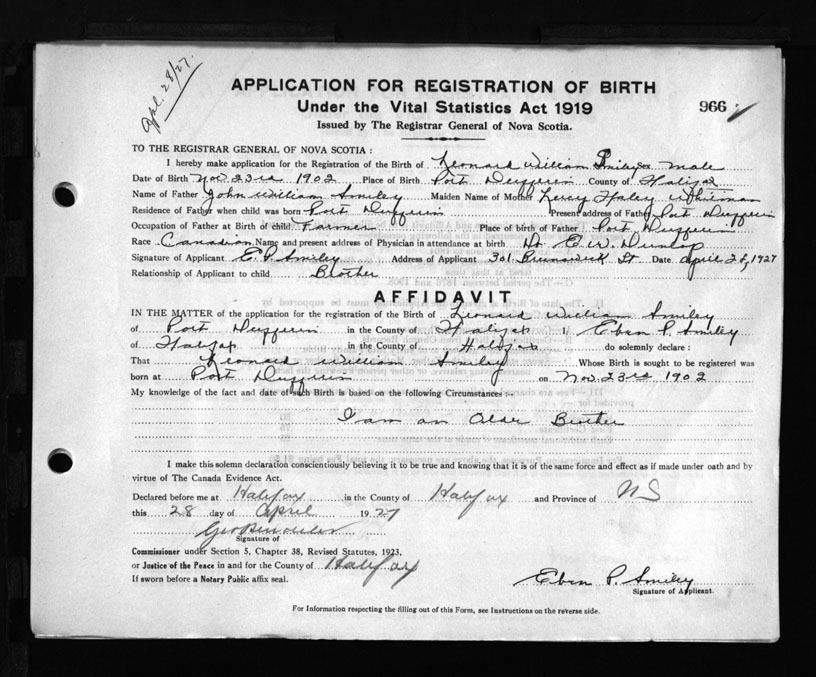 Apl. 28/27.
APPLICATION FOR REGISTRATION OF BIRTH
Under the Vital Statistics Act 1919
966
Issued by The Registrar General of Nova Scotia.
TO THE REGISTRAR GENERAL OF NOVA SCOTIA :
I hereby make application for the Registration of the Birth of Leonard William Smiley Sex male
Date of Birth Nov 23rd 1902 Place of Birth Port Dufferin County of Halifax
Name of Father John William Smiley Maiden Name of Mother Whitman
Residence of Father when child was born Port Dufferin Present address of Father Port Dufferin
Occupation of Father at Birth of child Farmer Place of birth of Father Port Dufferin
Race Canadian Name and present address of Physician in attendance at birth Dr. Dunlop
Signature of Applicant E. P. Smiley Address of Applicant 301 Brunswick St Date April 28, 1927
Relationship of Applicant to child Brother
AFFIDAVIT
IN THE MATTER of the application for the registration of the Birth of Leonard William Smiley
of Port Dufferin in the County of Halifax I, Eben P. Smiley
of Halifax in the County of Halifax do solemnly declare :
That Leonard William Smiley Whose Birth is sought to be registered was
born at Port Dufferin on Nov. 23rd 1902
My knowledge of the fact and date of such Birth is based on the following Circumstances :-
I am an Older Brother
I make this solemn declaration conscientiously believing it to be true and knowing that it is of the same force and effect as if made under oath and by
virtue of The Canada Evidence Act.
Declared before me at Halifax in the County of Halifax and Province of NS
this 28 day of April 1927
Signature of
Commissioner under Section 5, Chapter 38, Revised Statutes, 1923,
or Justice of the Peace in and for the County of Halifax
If sworn before a Notary Public affix seal.
Eben P. Smiley
Signature of Applicant.
For Information respecting the filling out of this Form, see Instructions on the reverse side.